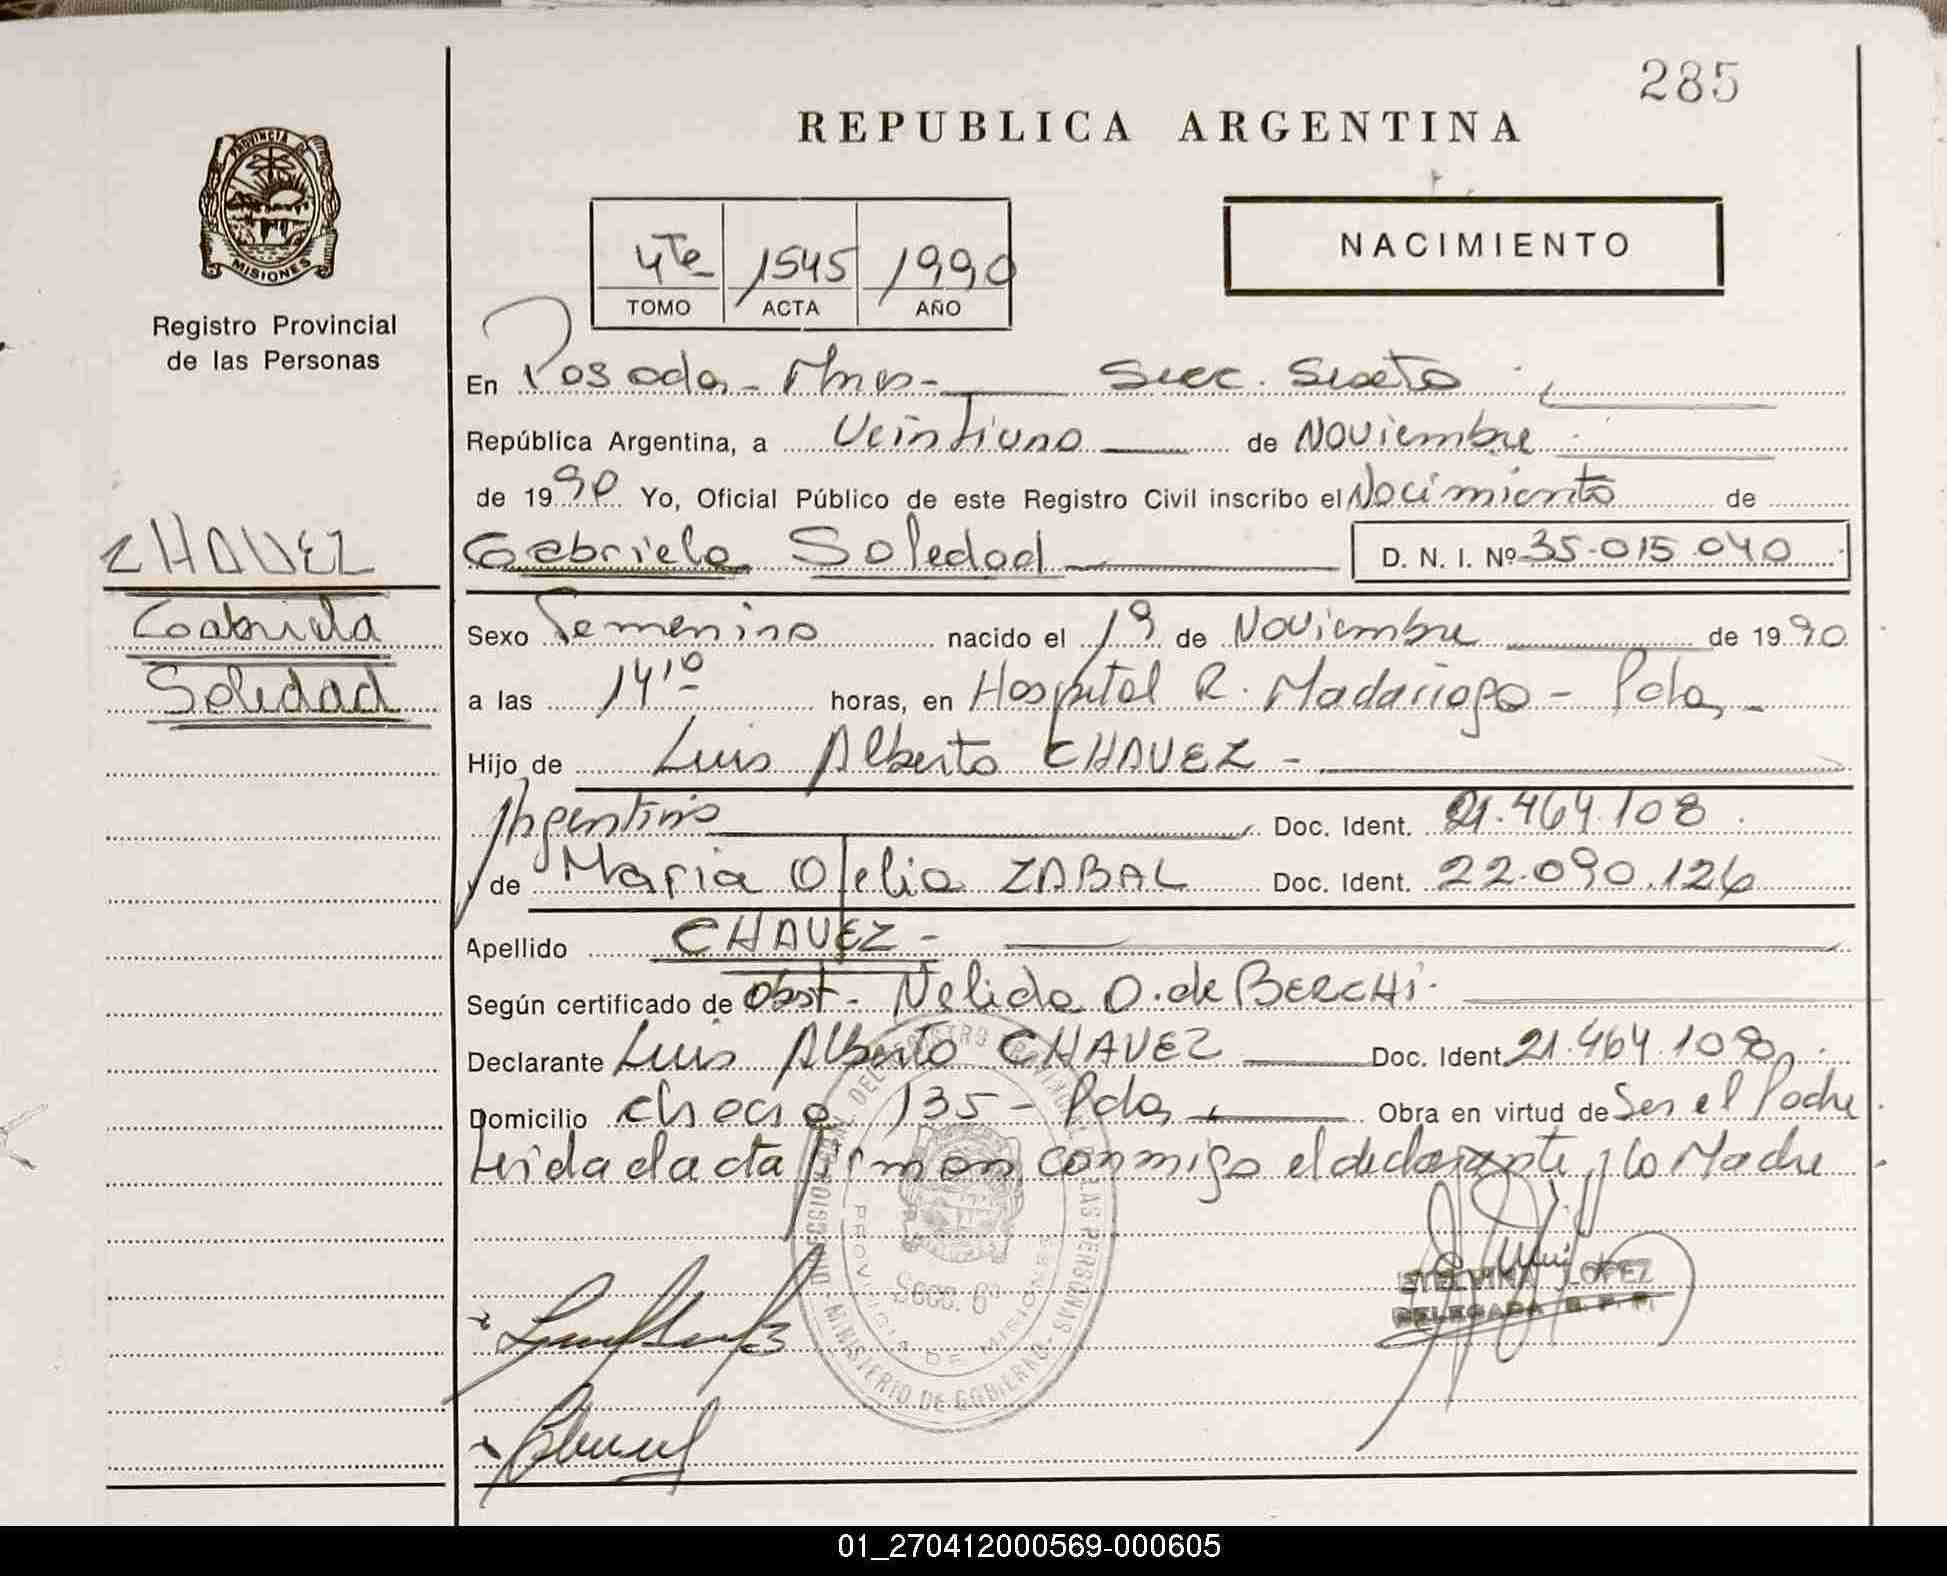 285
REPUBLICA ARGENTINA
PROVINCIA DE
MISIONES
Registro Provincial
de las Personas
4to 1545 1990
TOMO ACTA AÑO
NACIMIENTO
En Posadas - Mnes - Secc. Sexta
República Argentina, a Veintiuno de Noviembre
de 1990 Yo, Oficial Público de este Registro Civil inscribo el Nacimiento de
Gabriela Soledad D. N. I. Nº 35.015.040
CHAVEZ
Gabriela
Soledad
Sexo Femenino nacido el 19 de Noviembre de 1990
a las 14,10 horas, en Hospital R. Madariaga - Pdas -
Hijo de Luis Alberto CHAVEZ -
Argentino Doc. Ident. 21.464.108
y de Maria Ofelia ZABAL Doc. Ident. 22.090.126
Apellido CHAVEZ -
Según certificado de obst - Nelida O. de BERCHI
Declarante Luis Alberto CHAVEZ Doc. Ident 21.464.108
Domicilio Chacra 135 - Pdas Obra en virtud de Ser el Padre
Leida el acta firman conmigo el declarante y la Madre
REGISTRO PROVINCIAL DE LAS PERSONAS
PROVINCIA DE MISIONES
MINISTERIO DE GOBIERNO
Secc. 6ª
ETELVINA LOPEZ
DELEGADA R. P. P.
01_270412000569-000605